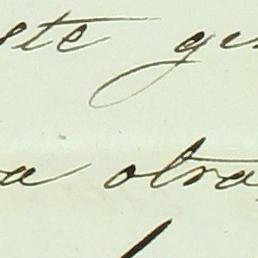 ste ge
a otra